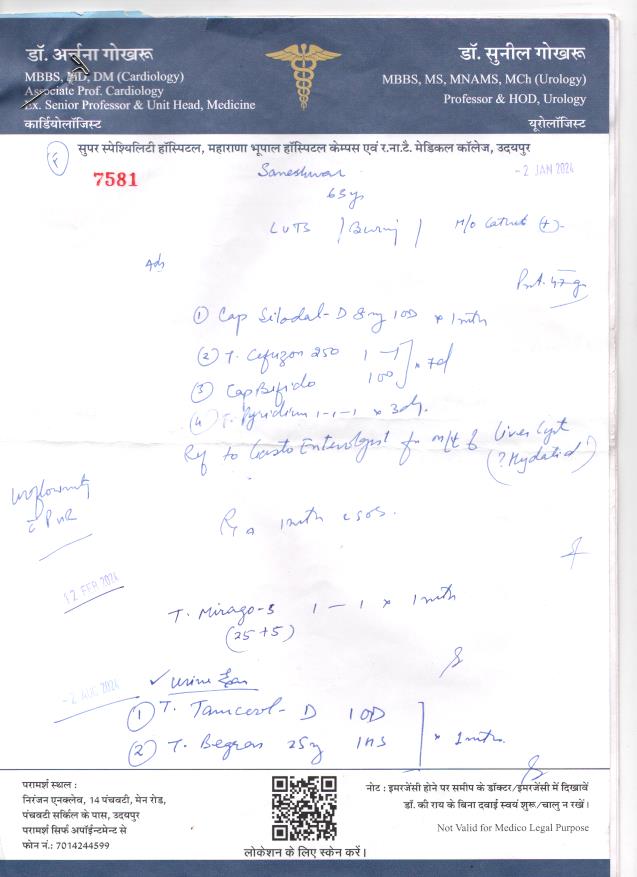 डॉ. अर्चना गोखरू
MBBS, MD, DM (Cardiology)
Associate Prof. Cardiology
Ex. Senior Professor & Unit Head, Medicine
कार्डियोलॉजिस्ट
डॉ. सुनील गोखरू
MBBS, MS, MNAMS, MCh (Urology)
Professor & HOD, Urology
यूरोलॉजिस्ट
सुपर स्पेश्यिलिटी हॉस्पिटल, महाराणा भूपाल हॉस्पिटल केम्पस एवं र.ना.टै. मेडिकल कॉलेज, उदयपुर
7581
-2 JAN 2024
65y
LUTS / Burning /
Adv
① Cap Silodal-D 8mg 1OD × 1mth
② T. Cefuzon 250 1-1
③ Cap Bifido 1OD × 7d
④ T. Pyridium 1-1-1 × 3d
Ref to Gastro Enterologist for m/t of Liver Cyst
(? Hydatid)
Uroflowmetry
c̄ PVR
12 FEB 2024
T. Mirago-S 1-1 × 1mth
(25+5)
-2 AUG 2024
✓ Urine
① T. Tamcerol-D 1OD
② T. Begran 25mg 1HS × 1mth.
परामर्श स्थल :
निरंजन एनक्लेव, 14 पंचवटी, मेन रोड,
पंचवटी सर्किल के पास, उदयपुर
परामर्श सिर्फ अपॉईन्टमेन्ट से
फोन नं.: 7014244599
लोकेशन के लिए स्केन करें।
नोट : इमरजेंसी होने पर समीप के डॉक्टर/इमरजेंसी में दिखावें
डॉ. की राय के बिना दवाई स्वयं शुरू/चालु न रखें।
Not Valid for Medico Legal Purpose